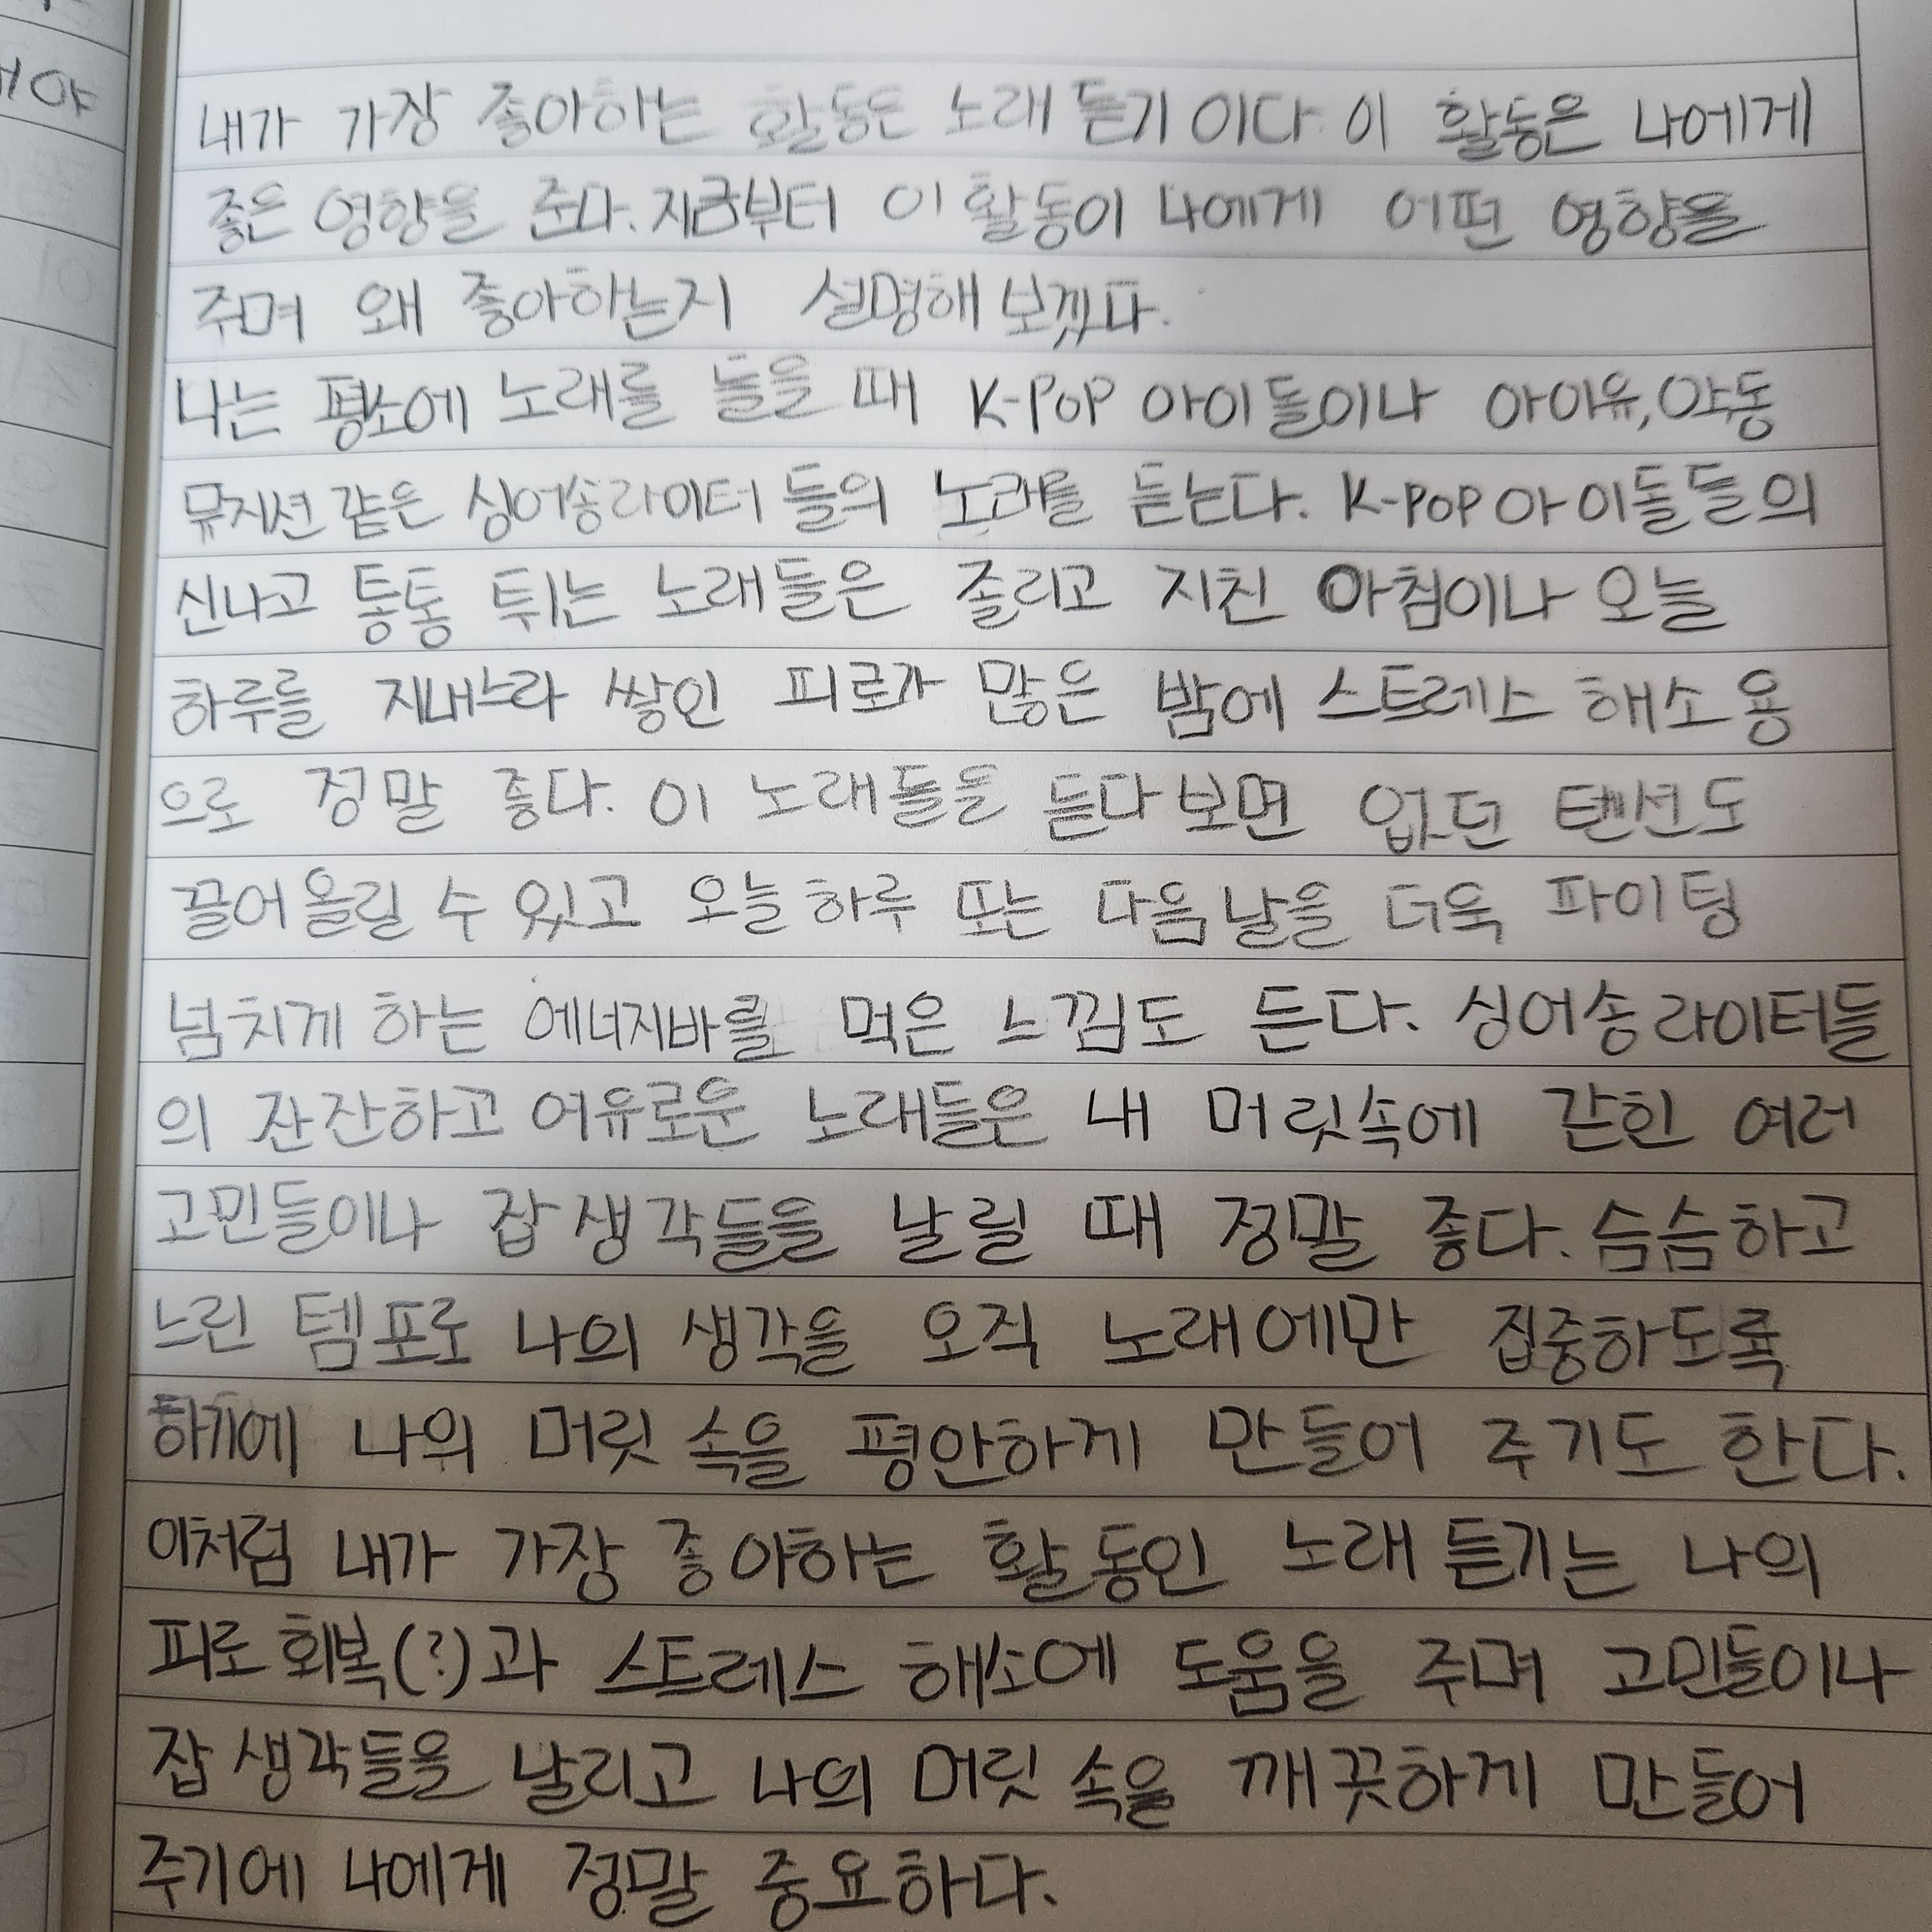 야
내가 가장 좋아하는 활동은 노래 듣기 이다. 이 활동은 나에게
좋은 영향을 준다. 지금부터 이 활동이 나에게 어떤 영향을
주며 왜 좋아하는지 설명해 보겠다.
나는 평소에 노래를 들을 때 K-POP 아이돌이나 아이유, 악동
뮤지션 같은 싱어송라이터 들의 노래를 듣는다. K-POP 아이돌들의
신나고 통통 튀는 노래들은 졸리고 지친 아침이나 오늘
하루를 지내느라 쌓인 피로가 많은 밤에 스트레스 해소 용
으로 정말 좋다. 이 노래들을 듣다보면 없던 텐션도
끌어올릴 수 있고 오늘 하루 또는 다음날을 더욱 파이팅
넘치게 하는 에너지바를 먹은 느낌도 든다. 싱어송라이터들
의 잔잔하고 여유로운 노래들은 내 머릿속에 갇힌 여러
고민들이나 잡생각들을 날릴 때 정말 좋다. 슴슴하고
느린 템포로 나의 생각을 오직 노래에만 집중하도록
하기에 나의 머릿 속을 평안하게 만들어 주기도 한다.
이처럼 내가 가장 좋아하는 활동인 노래 듣기는 나의
피로 회복(?)과 스트레스 해소에 도움을 주며 고민들이나
잡생각들을 날리고 나의 머릿 속을 깨끗하게 만들어
주기에 나에게 정말 중요하다.